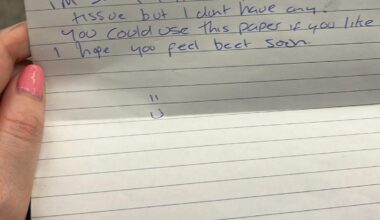 tissue but I dont have any.
you could use this paper if you like
I hope you feel beet soon.